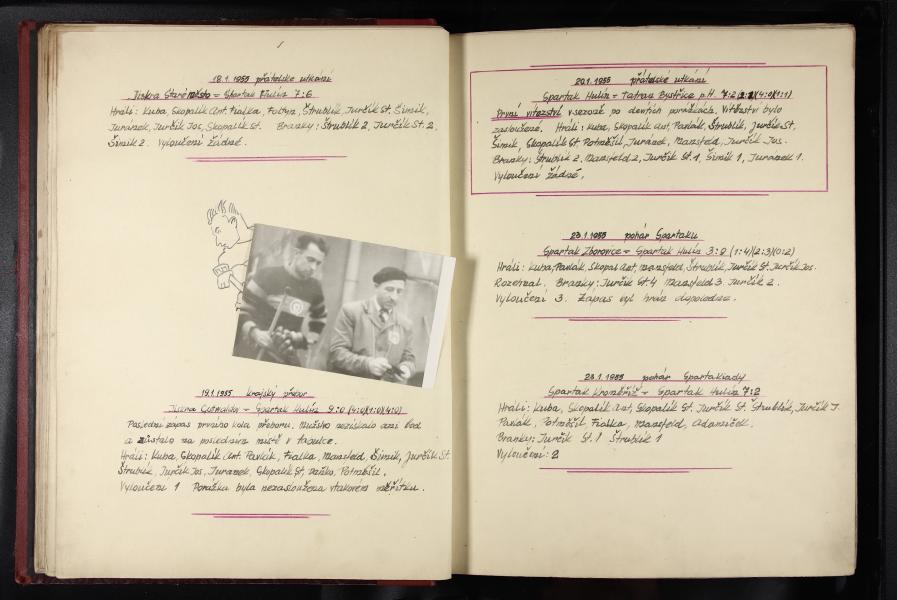 18.1.1955 přátelské utkání
Jiskra Staré město - Spartak Hulín 7:6
Hráli: Kuba, Skopalík Ant. Fialka, Foltýn, Štrublík, Jurčík St. Šimík,
Juranek, Jurčík Jos, Skopalík St. Branky: Štrublík 2, Jurčík St. 2,
Šimík 2. Vyloučeni žádné.
19.1.1955 krajský přebor
Jiskra - Spartak Hulín 9:0 (4:0)(1:0)(4:0)
Poslední zápas prvního kola přeboru. Mužstvo nezískalo ani bod
a zůstalo na posledním místě v tabulce.
Hráli: Kuba, Skopalík Ant. Pavlák, Fialka, Mansfeld, Šimík, Jurčík St.
Štrublík, Jurčík Jos, Juranek, Skopalík St. Potměšil.
Vyloučeni 1 Porážka byla nezasloužena v takovém měřítku.
20.1.1955 přátelské utkání
Spartak Hulín - Tatran Bystřice p.H. 7:2 (4:0)(1:1)
První vítězství v sezoně po devíti porážkách. Vítězství bylo
zasloužené. Hráli: Kuba, Skopalík Ant, Pavlák, Štrublík, Jurčík St,
Šimík, Skopalík St. Potměšil, Juránek, Mansfeld, Jurčík Jos.
Branky: Štrublík 2. Mansfeld 2, Jurčík St. 1, Šimík 1, Juranek 1.
Vyloučeni žádné,
23.1.1955 pohár Spartaku
Spartak Zborovice - Spartak Hulín 3:9 (1:4)(2:3)(0:2)
Hráli: Kuba, Pavlák, Skopal Ant, Mansfeld, Štrublík, Jurčík St. Jurčík Jos.
Rozehnal. Branky: Jurčík St. 4 Mansfeld 3 Jurčík 2.
Vyloučeni 3. Zápas byl hrán dopoledne.
23.1.1955 pohár Spartakiady
Spartak Kroměříž - Spartak Hulín 7:2
Hráli: Kuba, Skopalík Ant, Skopalík St. Jurčík St. Štrublík, Jurčík J.
Pavlák, Potměšil Fialka, Mansfeld, Adamíček.
Branky: Jurčík St. 1 Štrublík 1
Vyloučeni: 2